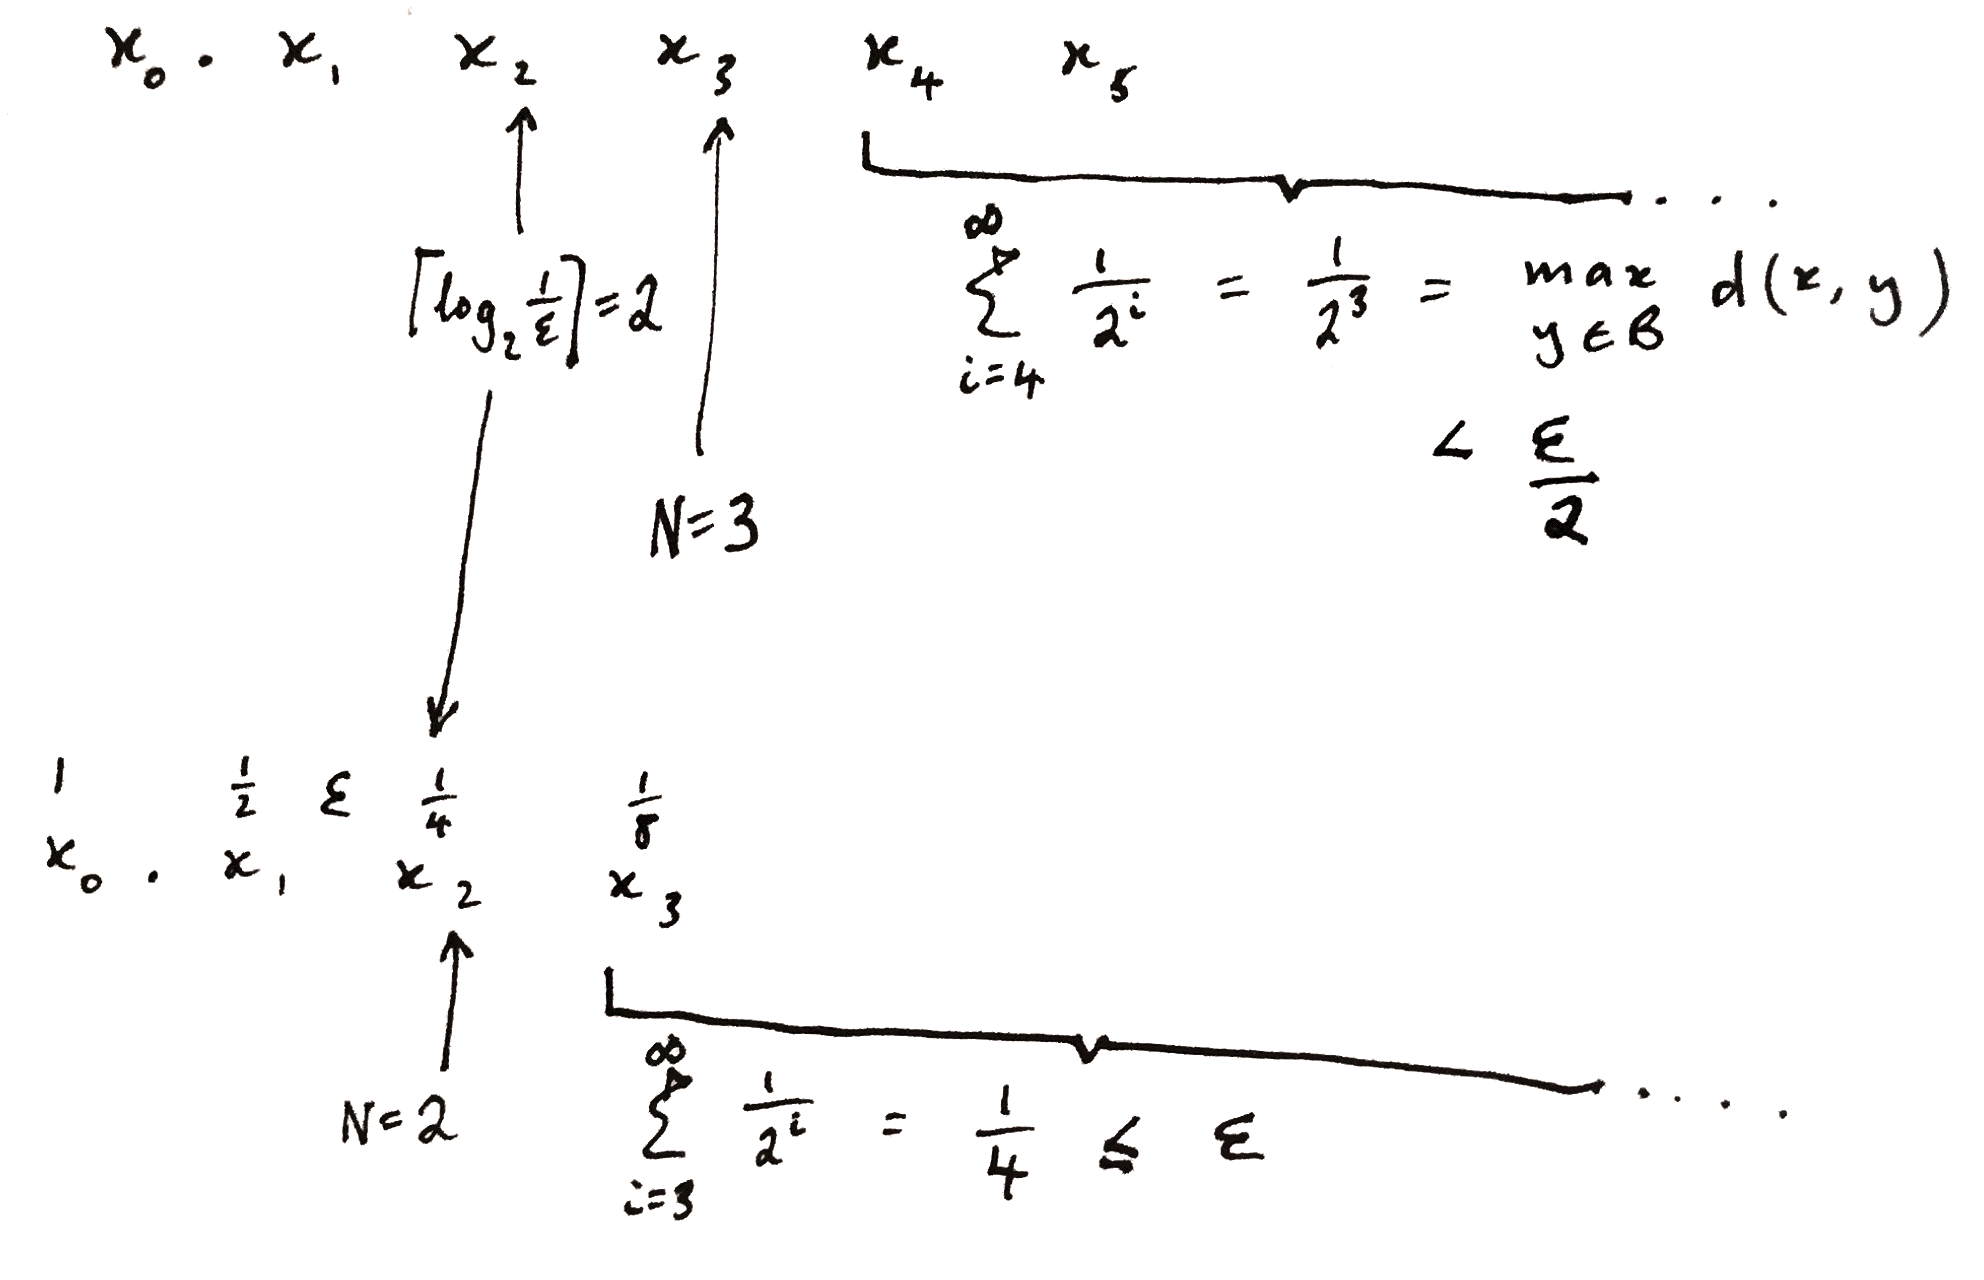 x₀ . x₁ x₂ x₃ x₄ x₅
⌈log₂ 1/ε⌉ = 2
∞ ∑ i=4 1/2ⁱ = 1/2³ = max y∈B d(x, y)
< ε/2
N=3
1 1/2 ε 1/4 1/8
x₀ . x₁ x₂ x₃
N=2
∞ ∑ i=3 1/2ⁱ = 1/4 ≤ ε